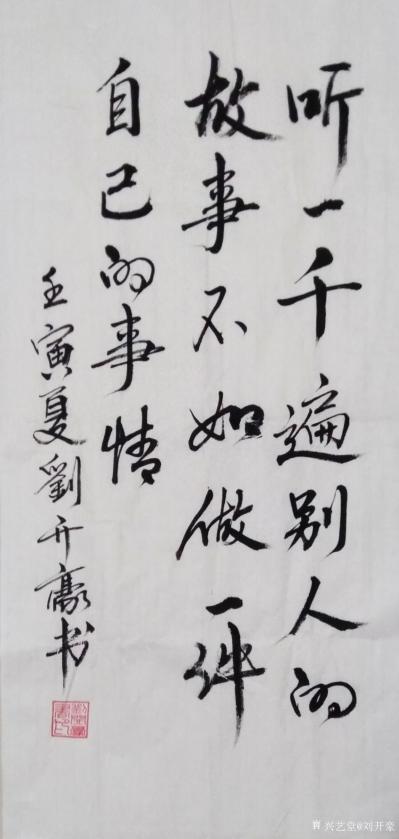 听一千遍别人的
故事不如做一件
自己的事情
壬寅夏劉开豪书
兴艺堂@刘开豪